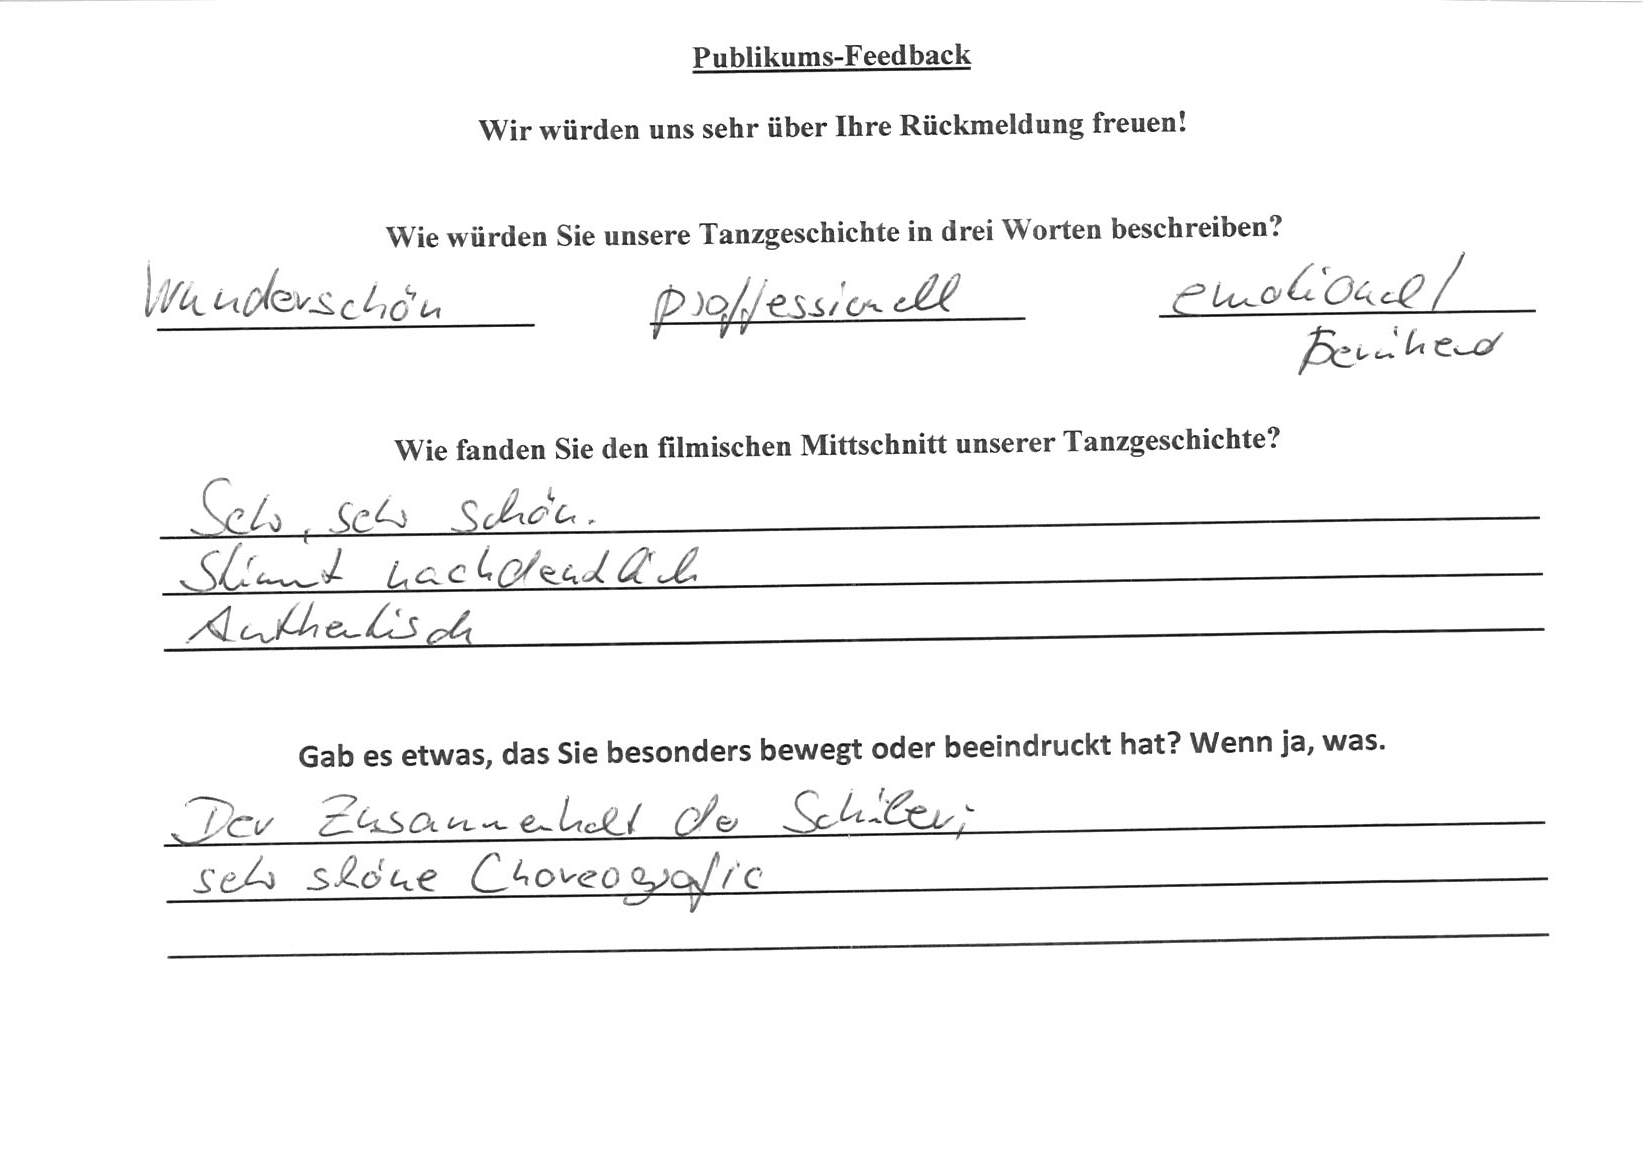 Publikums-Feedback
Wir würden uns sehr über Ihre Rückmeldung freuen!
Wie würden Sie unsere Tanzgeschichte in drei Worten beschreiben?
Wunderschön proffessionell emotional/
Berührend
Wie fanden Sie den filmischen Mittschnitt unserer Tanzgeschichte?
Sehr, sehr schön.
Stimmt nachdenklich
Authentisch
Gab es etwas, das Sie besonders bewegt oder beeindruckt hat? Wenn ja, was.
Der Zusammenhalt der Schüler;
sehr schöne Choreografie